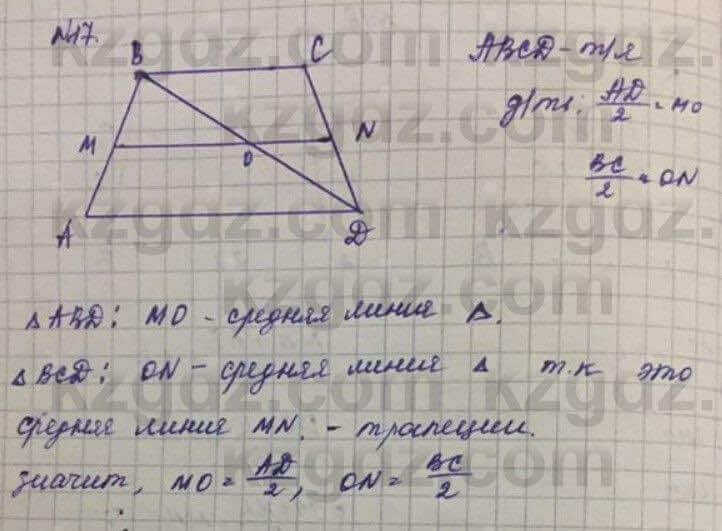 №17.
B C
M O N
A D
ABCD - т/я
д/ть: AD/2 = MO
BC/2 = ON
△ABD: MO - средняя линия △.
△BCD: ON - средняя линия △ т.к это
средняя линия MN. - трапеции.
значит, MO = AD/2, ON = BC/2
kzgdz.com